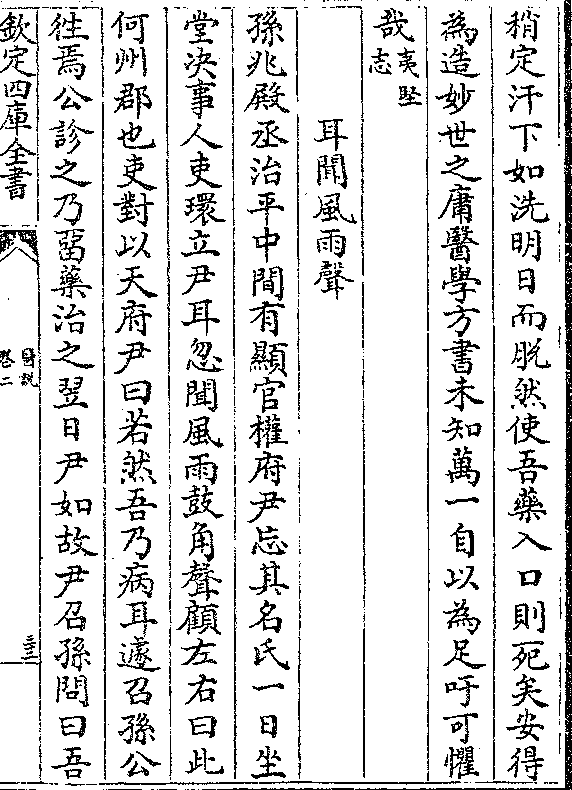 稍定汗下如洗明日而脱然使吾藥入口則死矣安得
為造妙世之庸醫學方書未知萬一自以為足吁可懼
哉夷堅志
耳聞風雨聲
孫兆殿丞治平中間有顯官權府尹忘其名氏一日坐
堂決事人吏環立尹耳忽聞風雨鼓角聲顧左右曰此
何州郡也吏對以天府尹曰若然吾乃病耳遽召孫公
徃焉公診之乃畱藥治之翌日尹如故尹召孫問曰吾
欽定四庫全書
醫說
卷二
三三